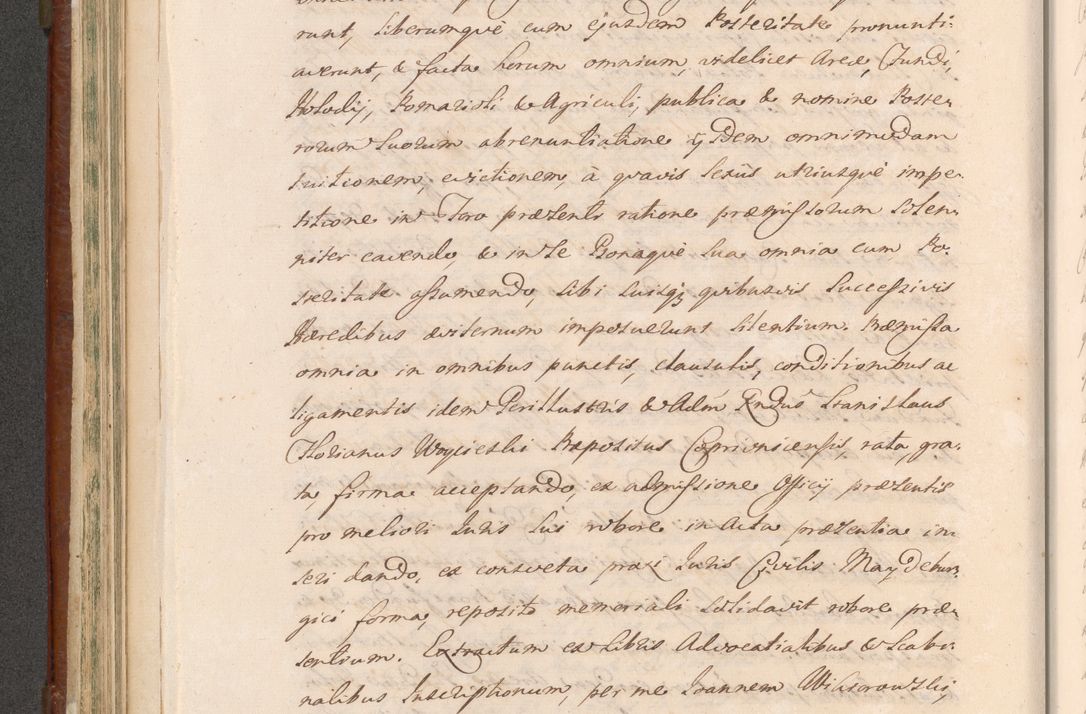 runt, liberumquè cum ejusdem Posteritate pronunti-
averunt, & facta horum omnium, videlicet Areæ, Fundi,
Hılodij, Pomarioli & Agriculi, publica & nomine Poste-
rorum suorum abrenuntiatione ijsdem omnimodam
tuitionem, evictionem, à quavis sexûs utriusquè impe-
titione in Foro præsenti ratione præmissorum solen-
niter cavendo, & in se Psonaquè sua omnia cum Po-
steritate assumendo, sibi suisq; quibusvis successivis
Hæredibus æviternum imposuerunt silentium. Præmissa
omnia in omnibus punctis, clausulis, conditionibus ac
ligamentis idem Perillustris & Adm Rndus Stanislaus
Florianus Woycicski Præpositus Coprivnicensis, rata, gra-
ta, firma acceptando, ex admissione Officij præsentis
pro meliori Juris sui robore in Acta præsentia in-
seri dando, ex consveta praxi Juris Civilis Maydebur-
gici forma, reposito memoriali solidavit robore præ-
sentium. Extractum ex Libris Advocatialibus & Scabi-
nalibus Inscriptionum, per me Joannem